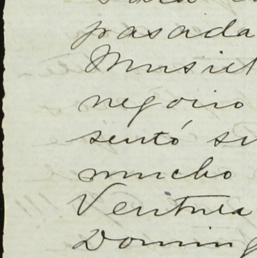 pasada
negocio
sentó su
mucho
Ventura
Doming